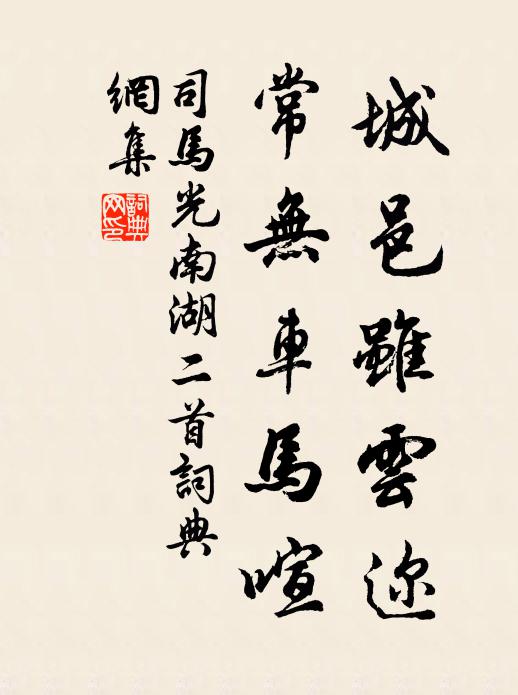 城邑雖雲迩
常無車馬喧
司馬光南湖二首詞典
網集
詞典
网印